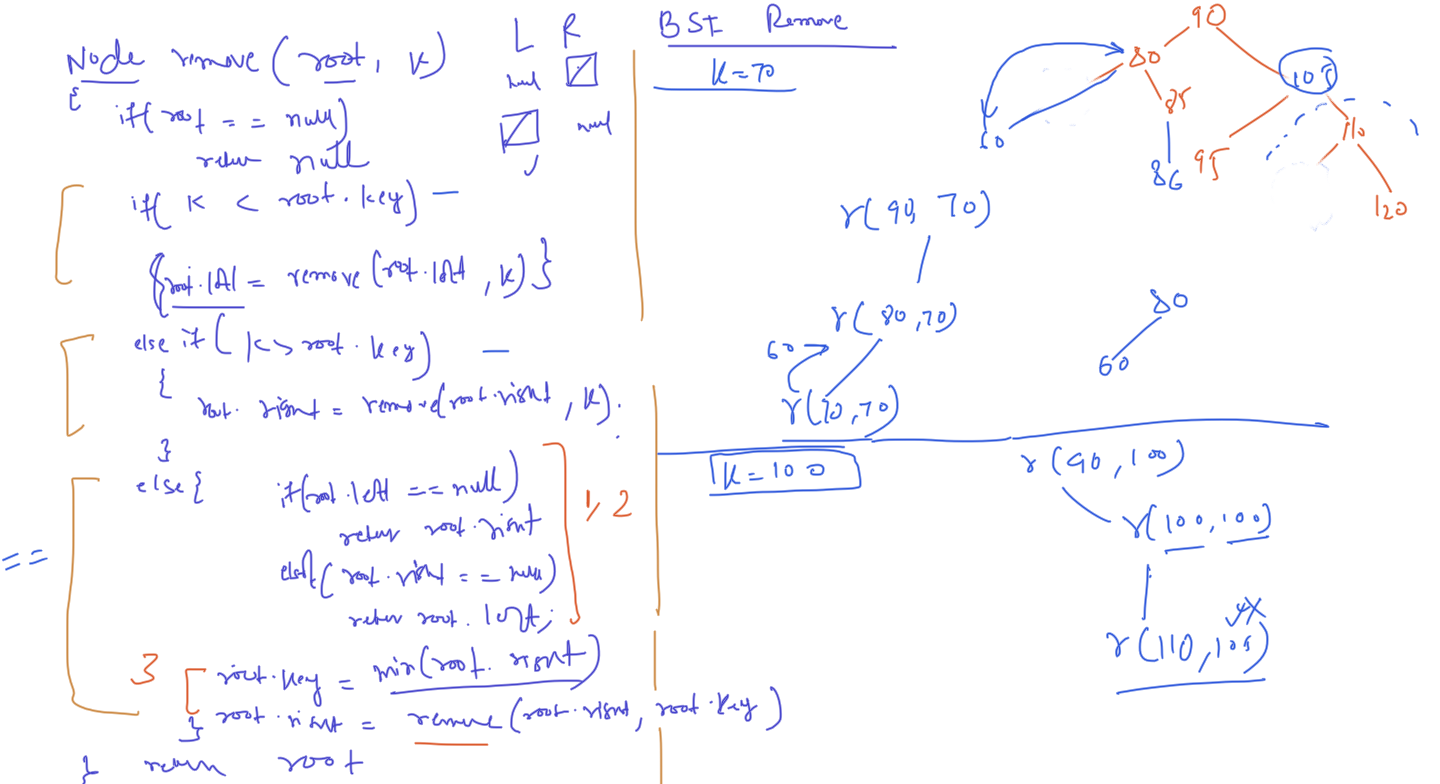 Node remove(root, k)
{
if(root == null)
return null
if( k < root.key) —
{root.left = remove(root.left, k)}
else if( k > root.key) —
{
root.right = remove(root.right, k).
}
else {
if(root.left == null)
return root.right
elseif(root.right == null)
return root.left;
1, 2
==
3
root.key = min(root.right)
root.right = remove(root.right, root.key)
}
} return root
L R
null
null
BST Remove
k=70
90
80
105
85
110
60
86
95
120
r(90, 70)
r(80,70)
60
r(70,70)
80
60
k=100
r(90,100)
r(100,100)
r(110,105)